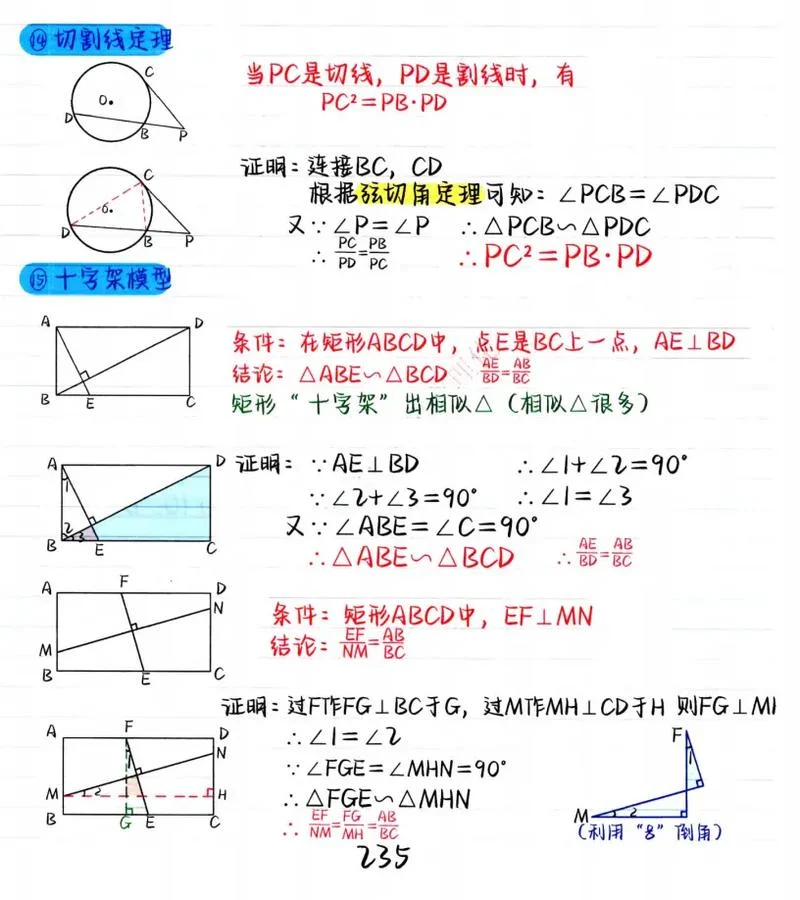 ⑭ 切割线定理
当PC是切线，PD是割线时，有
PC²=PB·PD
C
O
D
B
P
证明：连接BC，CD
根据弦切角定理可知：∠PCB=∠PDC
又∵∠P=∠P ∴△PCB∽△PDC
∴ PC/PD=PB/PC ∴PC²=PB·PD
C
O
D
B
P
⑮ 十字架模型
A D
B E C
条件：在矩形ABCD中，点E是BC上一点，AE⊥BD
结论：△ABE∽△BCD AE/BD=AB/BC
矩形“十字架”出相似△（相似△很多）
A D
1
2
3
B E C
证明：∵AE⊥BD ∴∠1+∠2=90°
∵∠2+∠3=90° ∴∠1=∠3
又∵∠ABE=∠C=90°
∴△ABE∽△BCD ∴AE/BD=AB/BC
A F D
N
M
B E C
条件：矩形ABCD中，EF⊥MN
结论：EF/NM=AB/BC
证明：过F作FG⊥BC于G，过M作MH⊥CD于H 则FG⊥MH
∴∠1=∠2
∵∠FGE=∠MHN=90°
∴△FGE∽△MHN
∴EF/NM=FG/MH=AB/BC
A F D
1 N
M 2 H
B G E C
F
1
M 2
（利用“8”倒角）
235